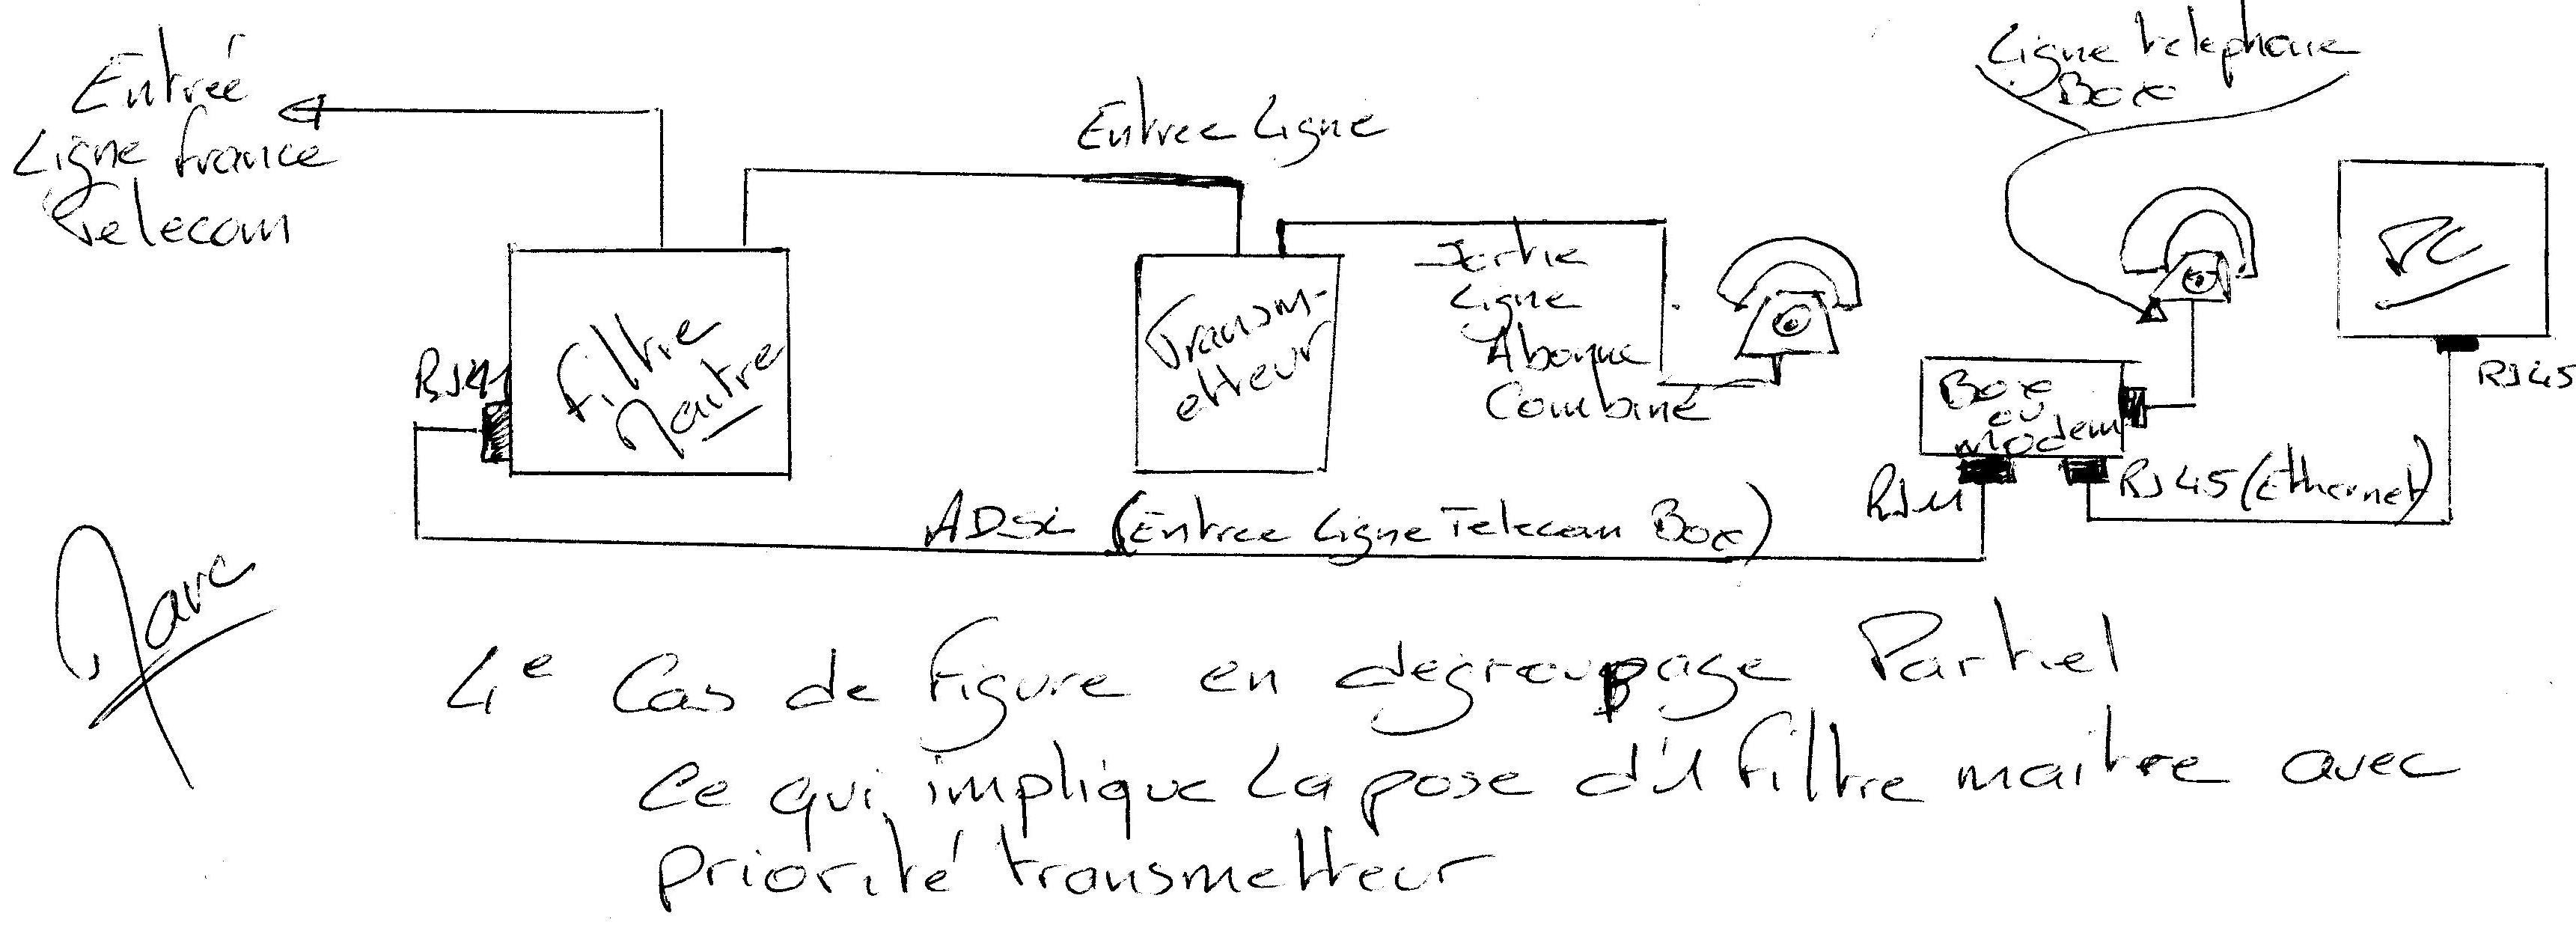 Entrée
Ligne france
Telecom
Entree Ligne
Ligne telephone
Box
Filtre
Maitre
RJ11
Transm-
etteur
Sortie
Ligne
Abonne
Combiné
Box
ou
modem
PC
RJ45
RJ11
RJ45 (Ethernet)
ADSL (Entree Ligne Telecom Box)
Marc
4e Cas de figure en degroupage Partiel
Ce qui implique La pose d'1 filtre maitre avec
priorité transmetteur